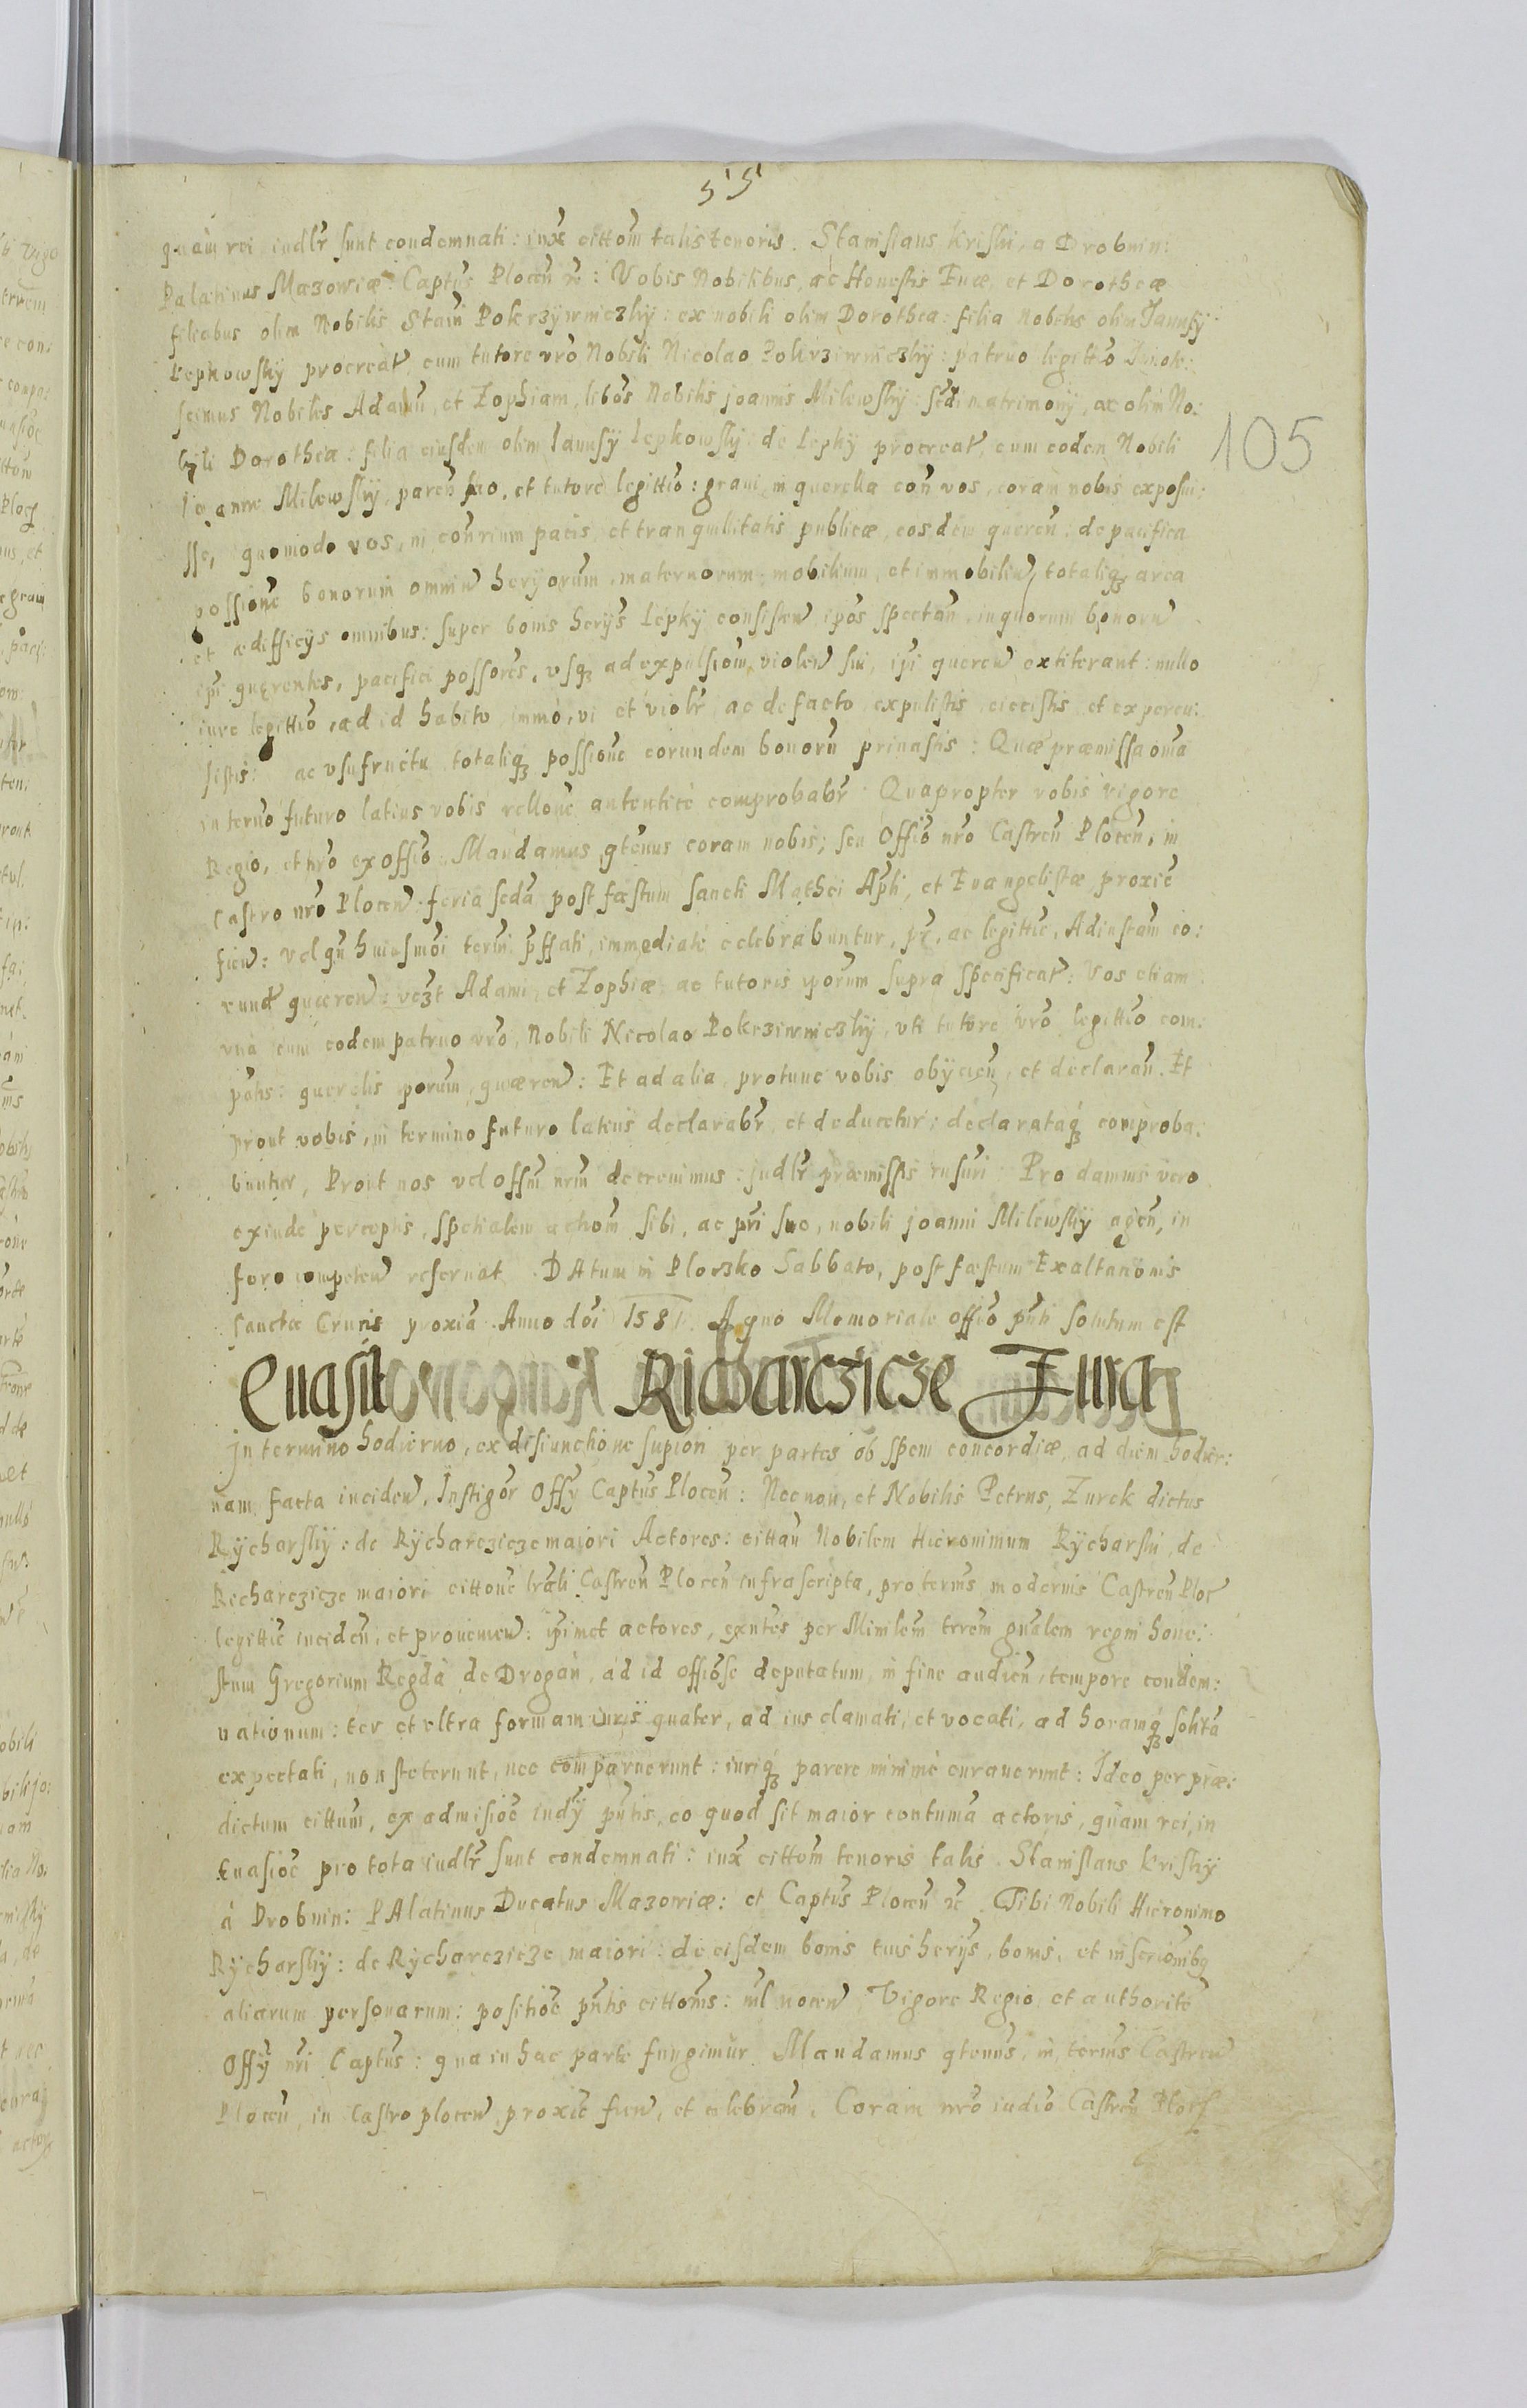 55
105
quàm rei iudlr sunt condemnati: iuxe cittom̃ talis tenoris. Stanislaus Kriski, a Drobnin:
Palatinus Mazowiæ: Captus Plocen̄ ꝛc: Vobis Nobilibus, ac Honestis Euæ, et Dorotheæ
filiabus olim Nobilis Stani Pokrzywniczky: ex nobili olim Dorothea: filia nobilis olim Jannsÿ
Lepkowsky procreat cum tutore vrõ Nobili Nicolao Pokrziwniczky: patruo legittõ
scimus Nobiles Adamū, et Zophiam, libõs Nobilis joannis Milewsky: scdi matrimonij, ac olim No:
byli Dorothea: filia eiusdem olim Jannsÿ Lepkowsky: de Lepky procreat, cum eodem Nobili
Joanne Milewsky, paren̄ suo, et tutore legittõ: graui in querella con̄ vos, coram nobis exposui:
sse, quomodo vos, in con̄rium pacis, et tranquilitatis publicæ, eosdem queren̄: de pacifica
possione bonorum omniũ herÿorum, maternorum, mobilium, et immobiliũ, totaliqȝ area
et ædifficÿs omnibus: super bonis herÿs Lepky consisten̄ ipõs spectan̄, in quorum bonorũ
ipĩ querentes, pacifici possores, vsqȝ ad expulsiom̃ violen̄ sui, ipĩ queren̄ extiterant: nullo
iure legittõ, ad id habito immò, vi et violr̃ ac de facto expulistis, eiecistis, et expercu:
sistis: ac vsufructu totaliqȝ possione eorundem bonorũ priuastis: Quæ præmissa om̃a
in termo futuro latius vobis rellone autenticè comprobabr̃. Quapropter vobis vigore
Regio, et nrõ ex offiõ. Mandamus qtenus coram nobis, seu Offiõ nrõ Castren̄ Plocen̄, in
Castro nrõ Plocen̄ feria scda post fæstum sancti Mathei Apli, et Euangelistæ proxiẽ
fien̄: vel qñ huiusmõi termi p̃ffati, immediatè celebrabuntur, ac legittiẽ, Ad instam̃ eo:
rund queren̄: vczt Adami, et Zophiæ ac tutoris ipõrum supra specificat: Vos etiam
vna cum eodem patruo vrõ, Nobili Nicolao Pokrziwniczky, vti tutore vrõ legittõ com:
patis: querelis ipõrum, quæren̄: Et ad alia, protunc vobis obÿcien̄, et declaran̄. Et
prout vobis, in termino futuro latius declarabr̃ et deducetur: declarataqȝ comproba:
buntur, Prout nos vel offm̃ nrm̃ decreuimus: judlr̃ præmissis Pro damnis vero
exinde perceptis, spetialem actiom̃ sibi, ac pr̃i suo, nobili joanni Milewskÿ agen̄, in
foro competen̄ reseruat. DAtum in Ploczko Sabbato, post fæstum Exaltationis
sanctæ Crucis proxiã. Anno dõi 1581. A quo Memoriale offiõ pñti solutum est
Euasio Richarczicze Jura
In termino hodierno, ex disiunctione supiori per partes ob spem concordiæ, ad diem hodier:
nam facta inciden̄, Instigor Offÿ Captus Plocen̄: Nec non, et Nobilis Petrus, Zurek dictus
Rÿcharskÿ: de Rÿcharczicze maiori Actores: cittan̄ Nobilem Hieronimum Rÿcharski, de
Richarczicze maiori cittone lrãli Castren̄ Plocen̄ infrascripta, pro termis modernis Castren̄ Ploc
legittiẽ inciden̄, et prouenien̄: ipĩmet actores, exntes per Minilem̃ trrem̃ gnãlem regni hone:
stum Gregorium Regda de Drogan, ad id offiõse deputatum, in fine audien̄, tempore condem:
nationum: ter et vltra formam iuris quater, ad ius clamati, et vocati, ad horamqȝ solità
expectati, non steterunt, nec comparuerunt: iuriqȝ parere minimè curauerunt: Ideo per præ:
dictum cittum̃, ex admisiõe iudÿ pñtis, eo quod sit maior contuma actoris, quàm rei, in
Euasiõe pro tota iudlr̃ sunt condemnati: iux̃ cittom̃ tenoris talis. Stanislaus Kriskÿ
à Drobnin: PAlatinus Ducatus Mazowiæ: et Captus Plocen̄ ꝛc. Tibi Nobili Hieronimo
Rÿcharskÿ: de Rÿcharczicze maiori: de eisdem bonis tuis herÿs, bonis, et inscriõnibȝ
aliarum personarum: positiõe pñtis cittonis: nl̃ nocen̄ Vigore Regio, et authoritẽ
Offÿ nri Captus: qua in hac parte fungimur. Mandamus qtenus, in termis Castren̄
Plocen̄, in Castro plocen̄ proxiẽ fien̄, et celebran̄. Coram nrõ iudiõ Castren̄ Ploc